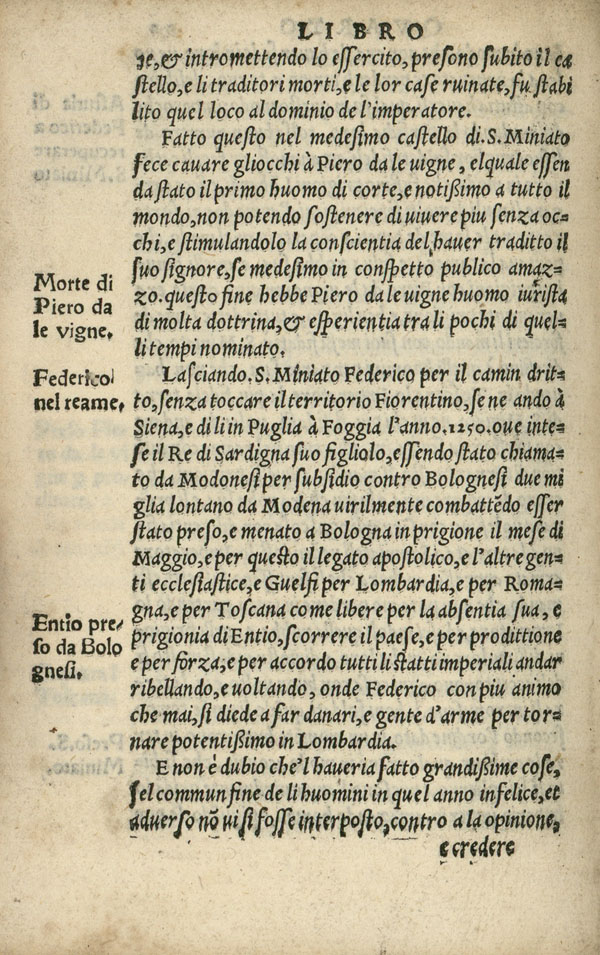 LIBRO
ze, & intromettendo lo eſſercito, preſono ſubito il ca
ſtello, e li traditori morti, e le lor caſe ruinate, fu ſtabi
lito quel loco al dominio de l'imperatore.
Fatto queſto nel medeſimo caſtello di. S. Miniato
fece cauare gliocchi à Piero da le uigne, elquale eſſen
da ſtato il primo huomo di corte, e notißimo a tutto il
mondo, non potendo ſoſtenere di uiuere piu ſenza oc=
chi, e ſtimulandolo la conſcientia del hauer traditto il
ſuo ſignore, ſe medeſimo in conſpetto publico amaz=
zo. queſto fine hebbe Piero da le uigne huomo iuriſta
di molta dottrina, & eſperientia tra li pochi di quel=
li tempi nominato.
Morte di
Piero da
le vigne.
Laſciando. S. Miniato Federico per il camin drit=
to, ſenza toccare il territorio Fiorentino, ſe ne ando à
Siena, e di li in Puglia à Foggia l'anno. 1250. oue inte=
ſe il Re di Sardigna ſuo figliolo, eſſendo ſtato chiama=
to da Modoneſi per ſubſidio contro Bologneſi due mi
glia lontano da Modena uirilmente combattēdo eſſer
ſtato preſo, e menato a Bologna in prigione il meſe di
Maggio, e per queſto il legato apoſtolico, e l'altre gen=
ti eccleſiaſtice, e Guelfi per Lombardia, e per Roma=
gna, e per Toſcana come libere per la abſentia ſua, e
prigionia di Entio, ſcorrere il paeſe, e per prodittione
e per forza, e per accordo tutti li ſtatti imperiali andar
ribellando, e uoltando, onde Federico con piu animo
che mai, ſi diede a far danari, e gente d'arme per tor=
nare potentißimo in Lombardia.
Federico
nel reame.
Entio pre-
ſo da Bolo
gneſi.
E non è dubio che'l haueria fatto grandißime coſe,
ſel commun fine de li huomini in quel anno infelice, et
aduerſo nō ui ſi foſſe interpoſto, contro a la opinione,
e credere